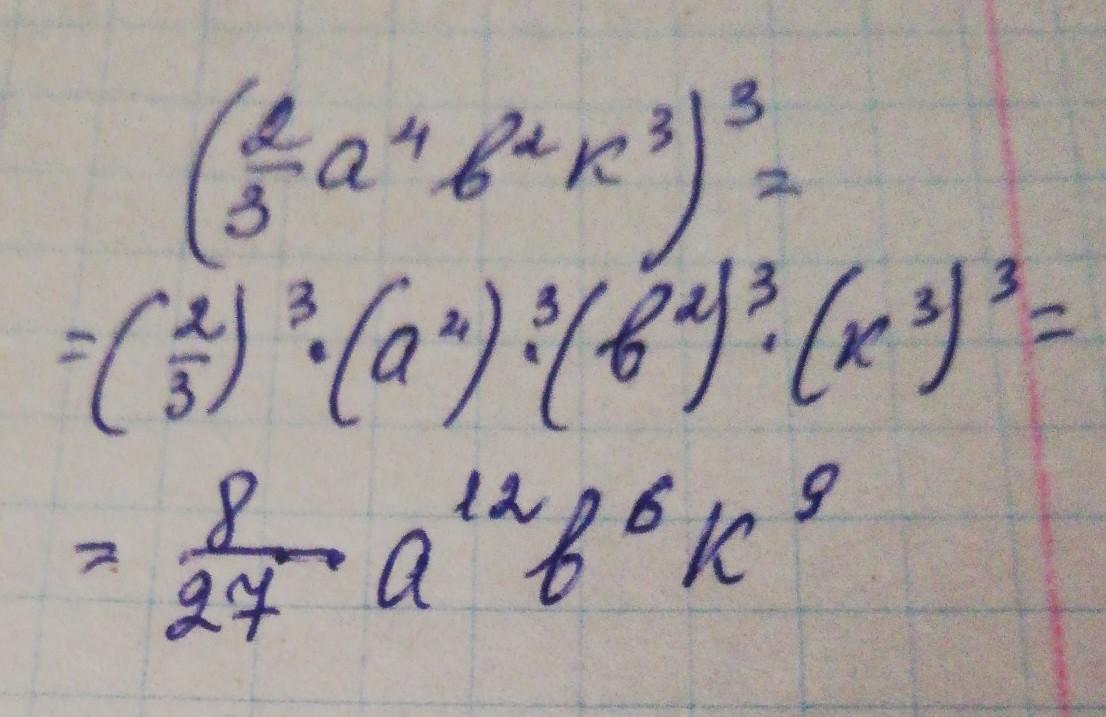 (2/3 a⁴ в² к³)³ =
= (2/3)³ · (a⁴)³ · (в²)³ · (к³)³ =
= 8/27 a¹² в⁶ к⁹